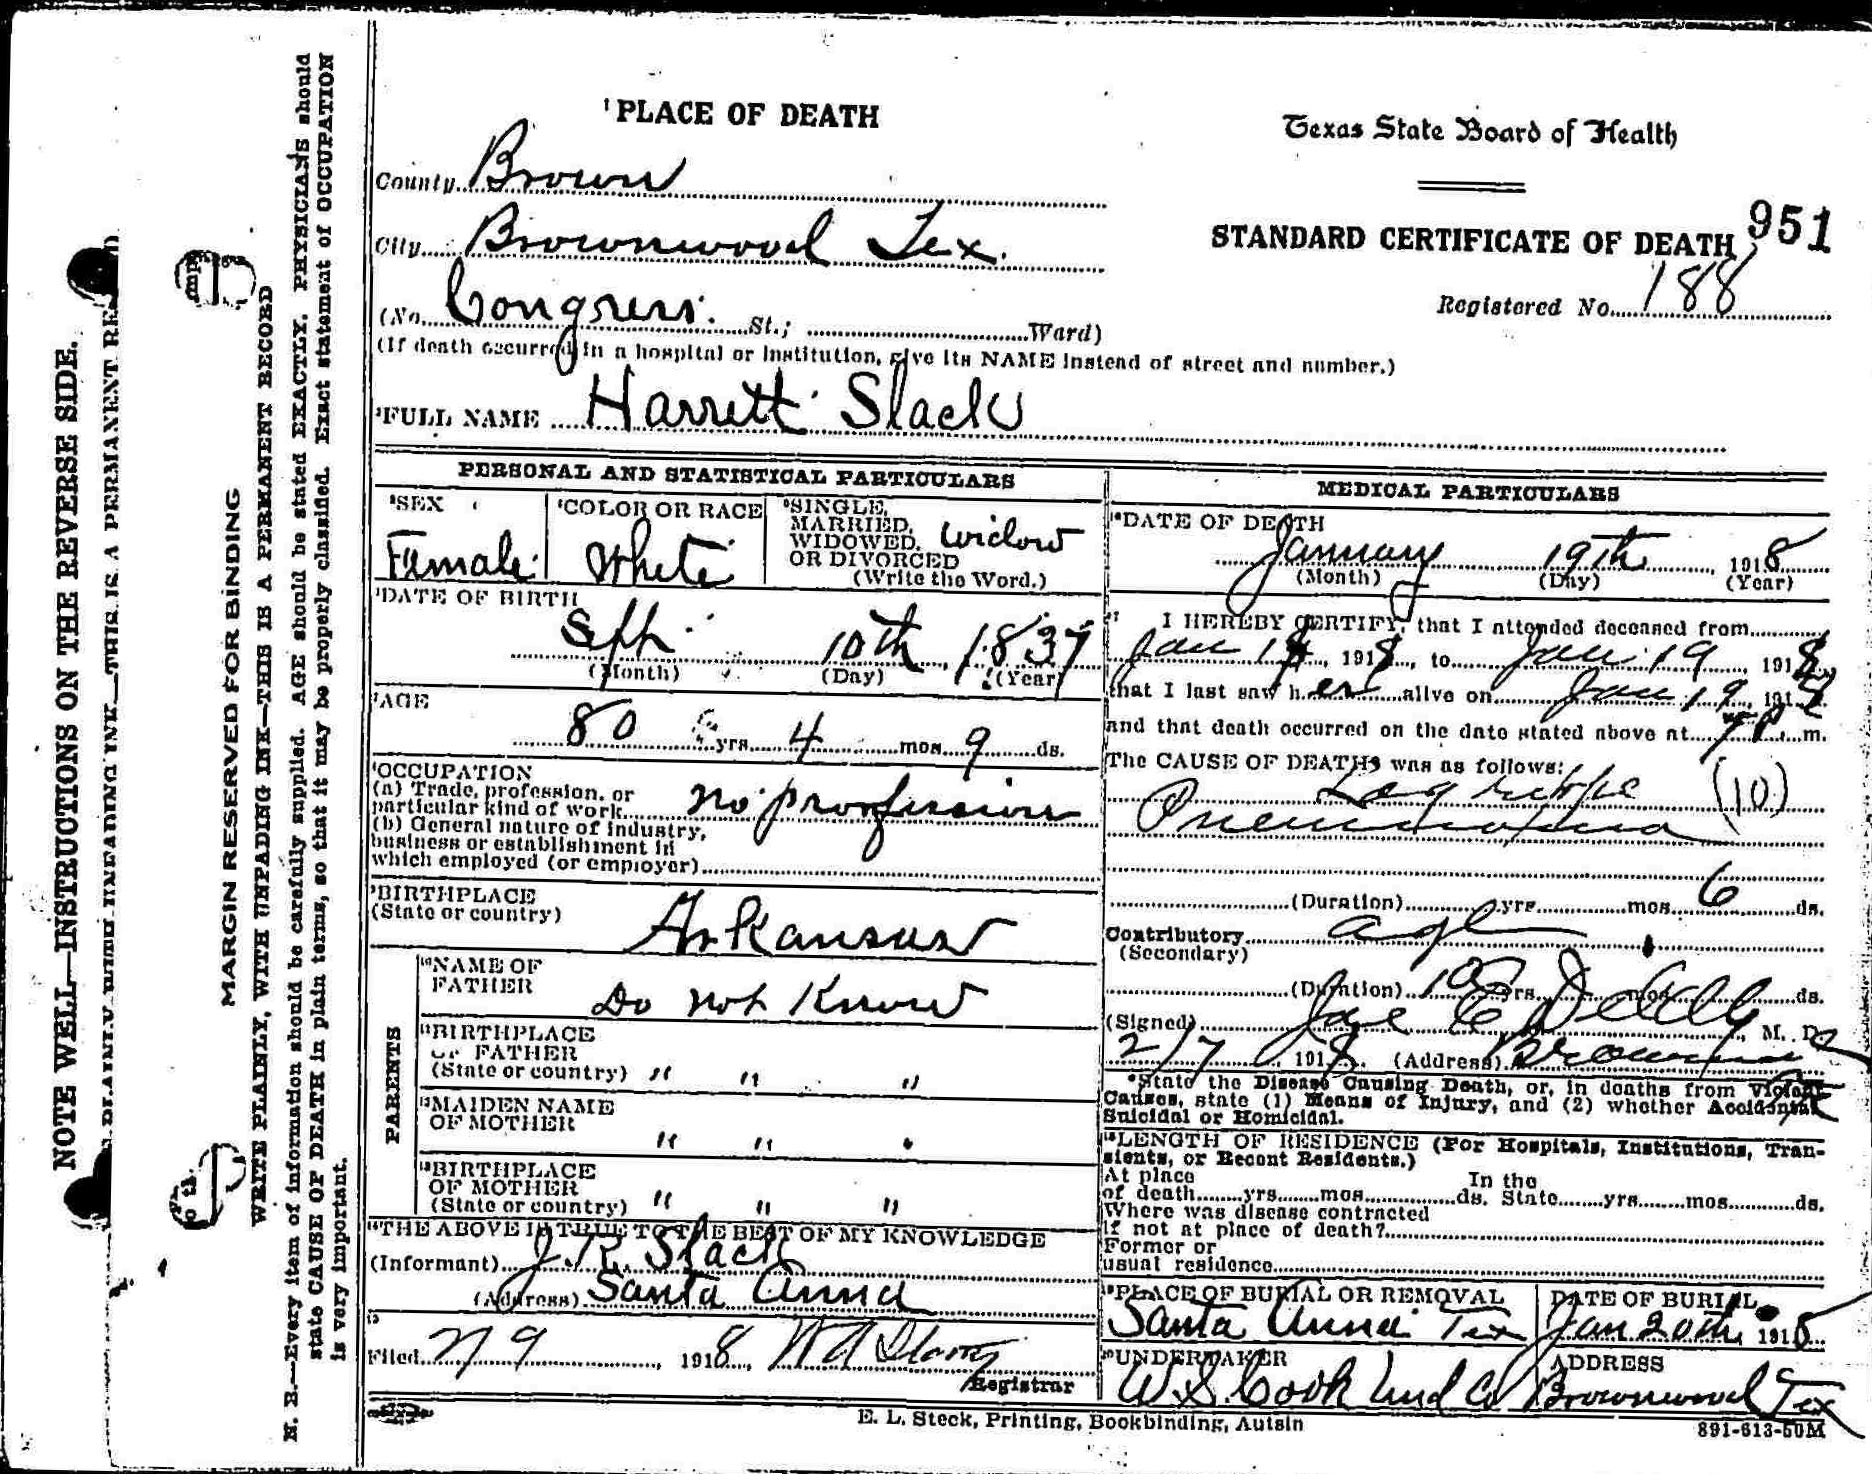 ¹PLACE OF DEATH
Texas State Board of Health
County Brown
951
City Brownwood Tex.
STANDARD CERTIFICATE OF DEATH
(No. Congress. St.; Ward)
Registered No. 188
(If death occurred in a hospital or institution, give its NAME instead of street and number.)
²FULL NAME Harrett Slack
PERSONAL AND STATISTICAL PARTICULARS
³SEX
Female
⁴COLOR OR RACE
White
⁵SINGLE,
MARRIED,
WIDOWED,
OR DIVORCED
(Write the Word.)
widow
⁶DATE OF BIRTH
Sept. 10th, 1837
(Month) (Day) (Year)
⁷AGE
80 yrs. 4 mos. 9 ds.
⁸OCCUPATION
(a) Trade, profession, or
particular kind of work no proffession
(b) General nature of industry,
business or establishment in
which employed (or employer)
⁹BIRTHPLACE
(State or country)
Arkansas
PARENTS
¹⁰NAME OF
FATHER
Do not Know
¹¹BIRTHPLACE
OF FATHER
(State or country) " " "
¹²MAIDEN NAME
OF MOTHER
" "
¹³BIRTHPLACE
OF MOTHER
(State or country) " " "
¹⁴THE ABOVE IS TRUE TO THE BEST OF MY KNOWLEDGE
(Informant) J. R. Slack
(Address) Santa Anna
¹⁵
Filed 1918,
Registrar
MEDICAL PARTICULARS
¹⁶DATE OF DEATH
January 19th, 1918
(Month) (Day) (Year)
¹⁷ I HEREBY CERTIFY, that I attended deceased from
Jan 1918, to Jan 19, 1918,
that I last saw her alive on Jan 19, 1918
and that death occurred on the date stated above at m.
The CAUSE OF DEATH* was as follows:
Lagrippe (10)
Pneumonia
(Duration) yrs. mos. 6 ds.
Contributory age
(Secondary)
(Duration) 10 yrs. mos. ds.
(Signed) M. D.
2/7 1918. (Address)
*State the Disease Causing Death, or, in deaths from Violent
Causes, state (1) Means of Injury, and (2) whether Accidental
Suicidal or Homicidal.
¹⁸LENGTH OF RESIDENCE (For Hospitals, Institutions, Tran-
sients, or Recent Residents.)
At place In the
of death yrs. mos. ds. State yrs. mos. ds.
Where was disease contracted
if not at place of death?
Former or
usual residence
¹⁹PLACE OF BURIAL OR REMOVAL
Santa Anna Tex
DATE OF BURIAL
Jan 20th, 1918
²⁰UNDERTAKER
W. S. Cook Und Co
ADDRESS
Brownwood Tex
E. L. Steck, Printing, Bookbinding, Autsin
891-613-50M
NOTE WELL—INSTRUCTIONS ON THE REVERSE SIDE.
THIS IS A PERMANENT
MARGIN RESERVED FOR BINDING
WRITE PLAINLY, WITH UNFADING INK—THIS IS A PERMANENT RECORD
N. B.—Every item of information should be carefully supplied. AGE should be stated EXACTLY. PHYSICIANS should
state CAUSE OF DEATH in plain terms, so that it may be properly classified. Exact statement of OCCUPATION
is very important.